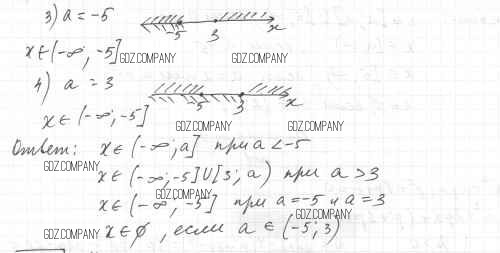 3) a = -5
-5 3 x
x ∈ (-∞; -5]
GDZ.COMPANY GDZ.COMPANY
4) a = 3
-5 3 x
x ∈ (-∞; -5]
GDZ.COMPANY GDZ.COMPANY
Ответ: x ∈ (-∞; a] при a < -5
GDZ.COMPANY
x ∈ (-∞; -5] U [3; a) при a > 3
GDZ.COMPANY
x ∈ (-∞, -5] при a = -5 и a = 3
GDZ.COMPANY
GDZ.COMPANY x ∈ ∅, если a ∈ (-5; 3)